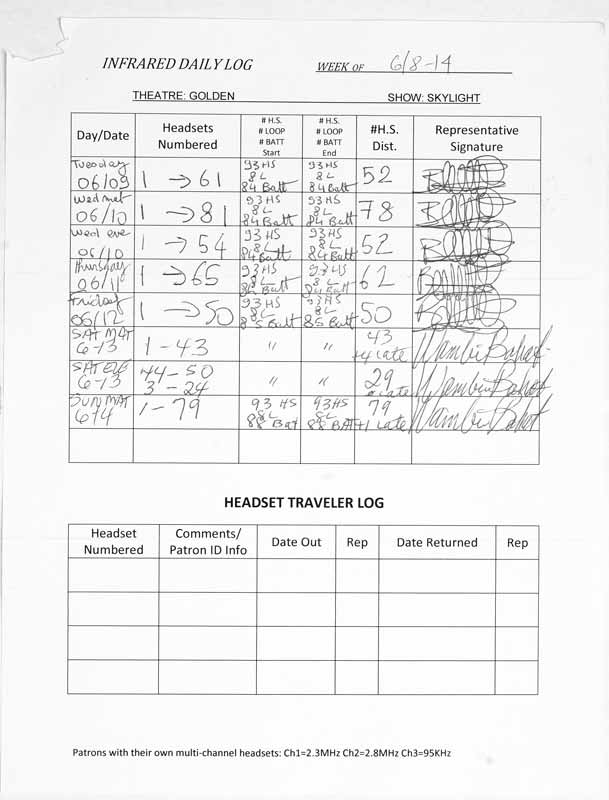 INFRARED DAILY LOG WEEK OF 6/8-14
THEATRE: GOLDEN SHOW: SKYLIGHT
Day/Date Headsets Numbered # H.S. # LOOP # BATT Start # H.S. # LOOP # BATT End #H.S. Dist. Representative Signature
Tuesday 06/09 1 → 61 93 HS 8 L 84 Batt 93 HS 8 L 84 Batt 52
Wed mat 06/10 1 → 81 93 HS 8L 84 Batt 93 HS 8L 84 Batt 78
Wed eve 06/10 1 → 54 93 HS 8L 84 Batt 93 HS 8L 84 Batt 52
Thursday 06/11 1 → 65 93 HS 8L 84 Batt 93 HS 8L 84 Batt 62
Friday 06/12 1 → 50 93 HS 8L 85 Batt 93 HS 8L 85 Batt 50
SAT MAT 6-13 1-43 " " 43 +4 late
SAT EVE 6-13 44-50 3-24 " " 29 late
SUN MAT 6-14 1-79 93 HS 8L 88 Bat 93 HS 8L 88 BAT 79 +1 late
HEADSET TRAVELER LOG
Headset Numbered Comments/ Patron ID Info Date Out Rep Date Returned Rep
Patrons with their own multi-channel headsets: Ch1=2.3MHz Ch2=2.8MHz Ch3=95KHz